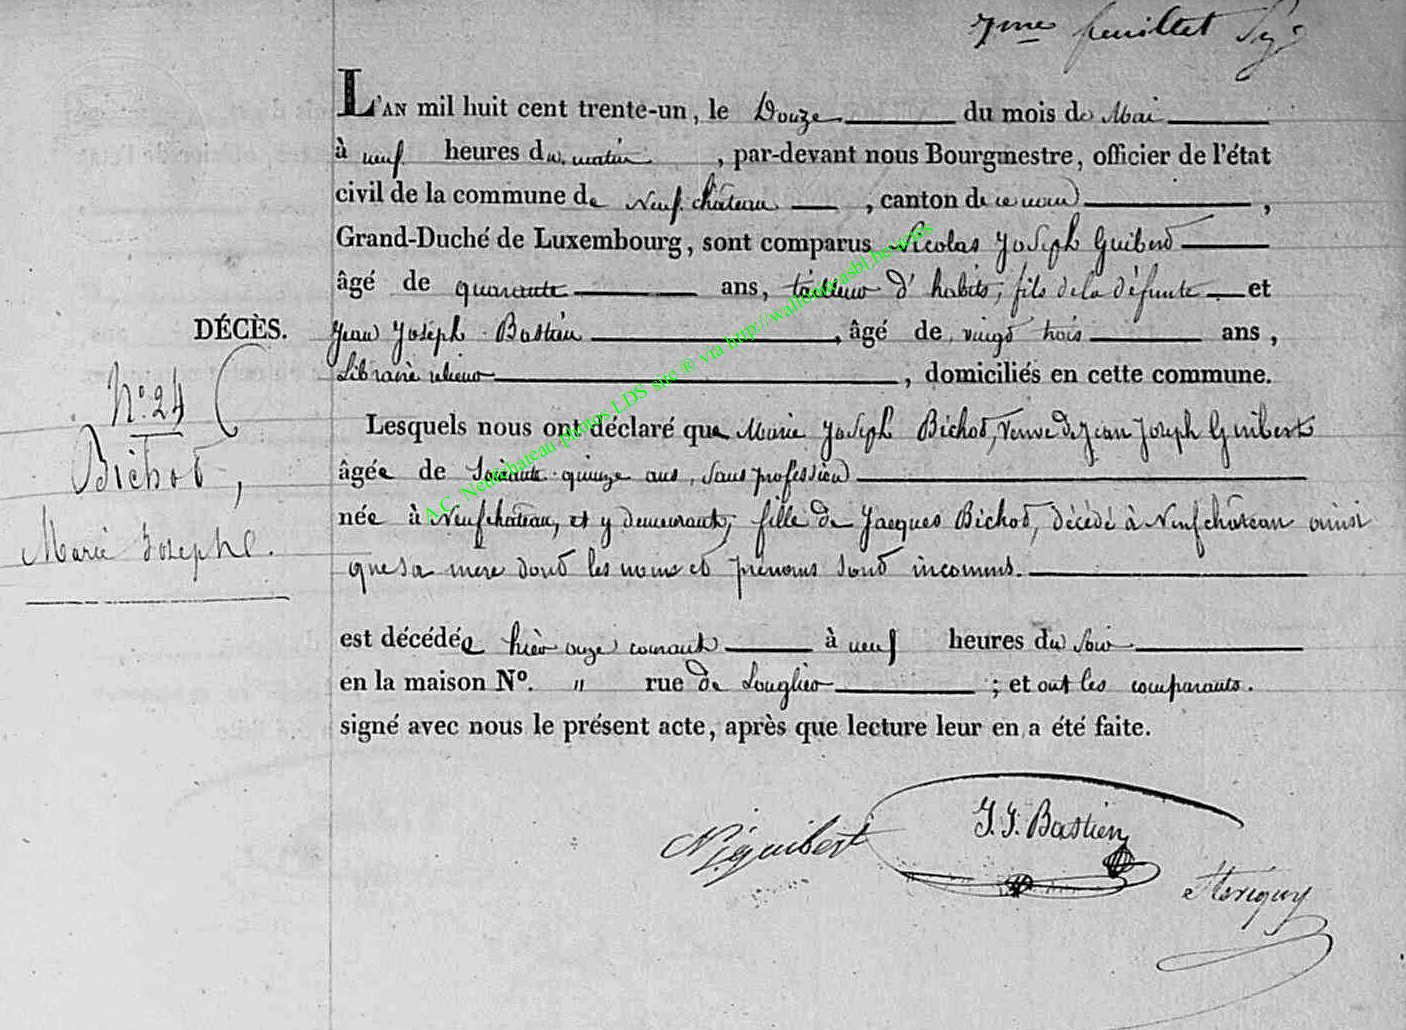 7me feuillet
L'AN mil huit cent trente-un, le Douze du mois de Mai
à neuf heures du matin, par-devant nous Bourgmestre, officier de l'état
civil de la commune de Neufchâteau, canton de ce nom,
Grand-Duché de Luxembourg, sont comparus Nicolas Joseph Guibert
âgé de quarante ans, tailleur d'habits, fils de la défunte et
DÉCÈS.
Jean Joseph Bastien, âgé de vingt trois ans,
Libraire relieur, domiciliés en cette commune.
N° 24
Bichot,
Marie Josephe.
Lesquels nous ont déclaré que Marie Joseph Bichot, veuve de Jean Joseph Guibert
âgée de Soixante-quinze ans, sans profession
née à Neufchâteau, et y demeurant, fille de Jacques Bichot, décédé à Neufchâteau ainsi
que sa mere dont les noms et prénoms sont inconnus.
est décédée hièr onze courant à neuf heures du Soir
en la maison N°. " rue de Longlier; et ont les comparants.
signé avec nous le présent acte, après que lecture leur en a été faite.
N. j guibert
J. J. Bastien
A.C. Neufchateau photos LDS site ® via http://wallonia-asbl.be/actes